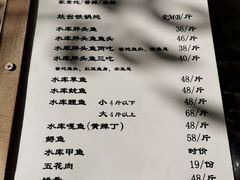 灶台铁锅炖 RMB/斤
水库胖头鱼 36/斤
水库胖头鱼头 46/斤
水库胖头鱼两吃
水库胖头鱼三吃 40/斤
水库草鱼 48/斤
水库鲶鱼 48/斤
水库鲤鱼 小 4斤以下 48/斤
大 4斤以上 68/斤
水库嘎鱼(黄辣丁) 58/斤
鲟鱼 58/斤
水库甲鱼 时价
五花肉 19/份